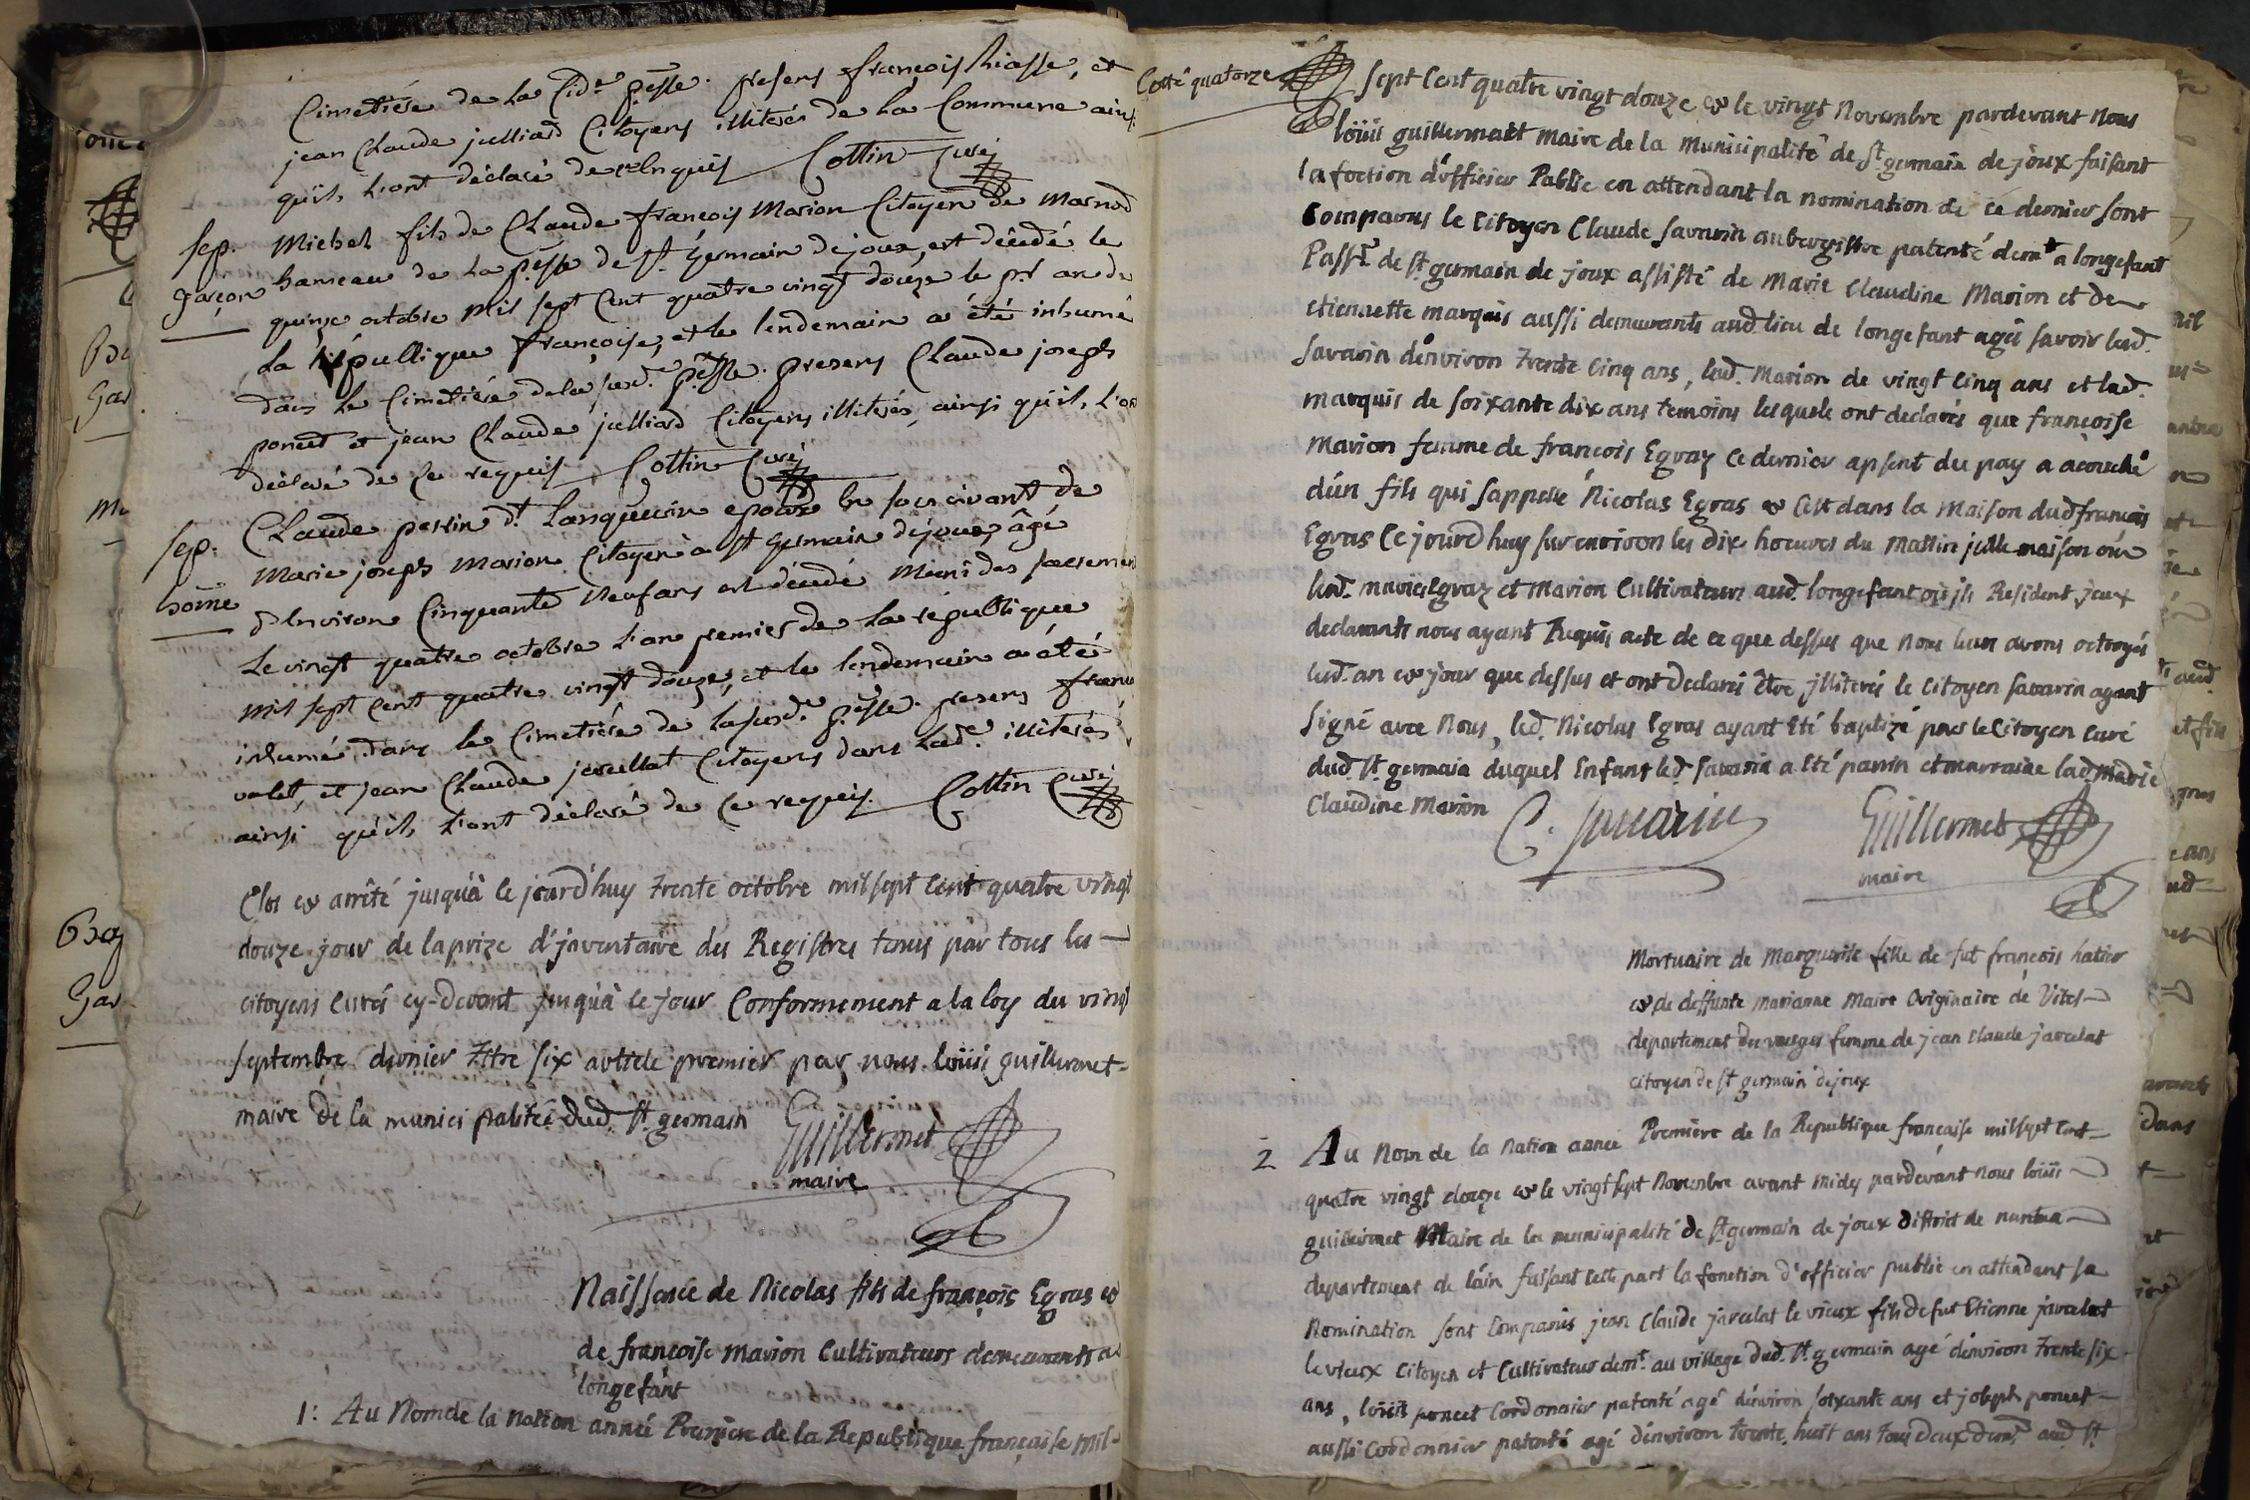 Cimetiére de la Sid.e p.sse presens françois hiasse, et
jean Claude julliard Citoyens illiterés de la Commune ainsi
qu'ils l'ont déclaré de ce enquis Cottin Curé
sep. Michel fils de Claude françois Marion Citoyen de Marnod
garçon hameau de la p.sse de St. Germain dejoux, est décédé le
quinze octobre Mil sept Cent quatre vingt douze le pr. an de
la République françoise, et le lendemain a été inhumé
dans le Cimetiére de la susd.e p.sse presens Claude joseph
poncet et jean Claude julliard Citoyens illiterés, ainsi qu'ils l'ont
déclaré de ce requis Cottin Curé
sep. Claude perrin dt. Languerin epoux en son vivant de
Marie joseph Marion Citoyen a St Germain dejoux, âgé
home d'Environ Cinquante Neuf ans est décédé Muni des sacremens
Le vingt quatre octobre l'an premier de la republique
Mil sept Cent quatre vingt douze, et le lendemain a été
inhumé dans le Cimetiére de la susd.e p.sse presens
valet, et jean Claude jarcellat Citoyens dans lad.e illiterés
ainsi qu'ils l'ont déclaré de ce requis. Cottin Curé
Clos et arrêté jusqu'à ce jourd'huy trente octobre mil sept Cent quatre vingt
douze jour de la prize d'jnventaire des Registres tenus par tous les
citoyens Curés cy-devant jusqu'à ce jour Conformement a la loy du vingt
septembre dernier titre six article premier par nous loüis guillermet
maire de la municipalité dud. St. germain Guillermet
maire
Naissance de Nicolas fils de françois Egras et
de françoise marion Cultivateurs demeurants a
longefant
1: Au Nom de la nation année Première de la Republique française mil
Cotté quatorze sept Cent quatre vingt douze et le vingt Novembre pardevant Nous
loüis guillermet maire de la Municipalité de St. germain de joux faisant
la foction d'officier Public en attendant la nomination de ce dernier sont
Comparus le Citoyen Claude Savarin aubergistre patenté demt. a longefant
Pass.e de St. germain de joux assisté de Marie Claudine Marion et de
etiennette marquis aussi demeurants aud. lieu de longefant agés savoir led.
Savarin d'environ trente Cinq ans, lad. Marion de vingt Cinq ans et lad.
marquis de soixante dix ans temoins lesquels ont declarés que françoise
Marion femme de francois Egraz Ce dernier apsent du pay a acouché
d'un fils qui s'appelle Nicolas Egras et C'est dans la maison dud francois
Egras Ce jourd'huy sur environ les dix heures du Mattin jcelle maison où
led. Egraz et Marion Cultivateurs aud. longefant où jls Resident, jceux
declarants nous ayant Requis acte de ce que dessus que Nous leur avons octroyés
led. an et jour que dessus et ont declarés être jlliterés le Citoyen Savarin ayant
signé avec Nous, led. Nicolas Egras ayant Eté baptizé par le Citoyen Curé
dud. St. germain duquel Enfant led. Savarin a Eté parrin et marraine lad. Marie
Claudine Marion C. Savarin Guillermet
maire
Mortuaire de Marguerite fille de fut françois hatier
et de deffunte marianne Maire Originaire de Vitel
departement des vosges femme de jean Claude jarcelat
citoyen de St germain dejoux
2 Au Nom de la Nation année Première de la Republique française mil sept Cent
quatre vingt douze et le vingt sept Novembre avant midy pardevant nous loüis
guillermet Maire de la municipalité de St. germain de joux district de nantua
departement de l'ain faisant cette part la fonction d'officier public en attendant sa
Nomination sont Comparus jean Claude jarcelat le vieux fils de fut Etienne jarcelat
le vieux Citoyen et Cultivateur demt. au village dud. St. germain agé d'environ trente six
ans, loüis poncet Cordonnier patenté agé d'environ soixante ans et joseph poncet
aussi Cordonnier patenté agé d'environ trente huit ans tous deux demt. aud. St.